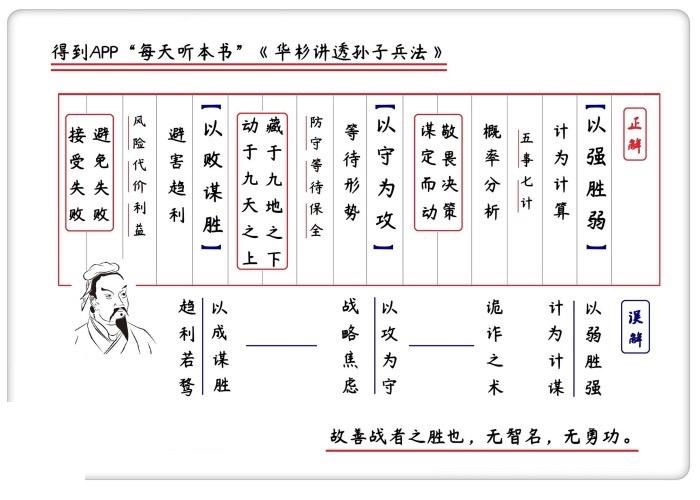 得到APP“每天听本书”《华杉讲透孙子兵法》
正解
【以强胜弱】
计为计算
五事七计
概率分析
敬畏决策
谋定而动
【以守为攻】
等待形势
防守等待保全
藏于九地之下
动于九天之上
【以败谋胜】
避害趋利
风险代价利益
避免失败
接受失败
误解
以弱胜强
计为计谋
诡诈之术
以攻为守
战略焦虑
以成谋胜
趋利若鹜
故善战者之胜也，无智名，无勇功。